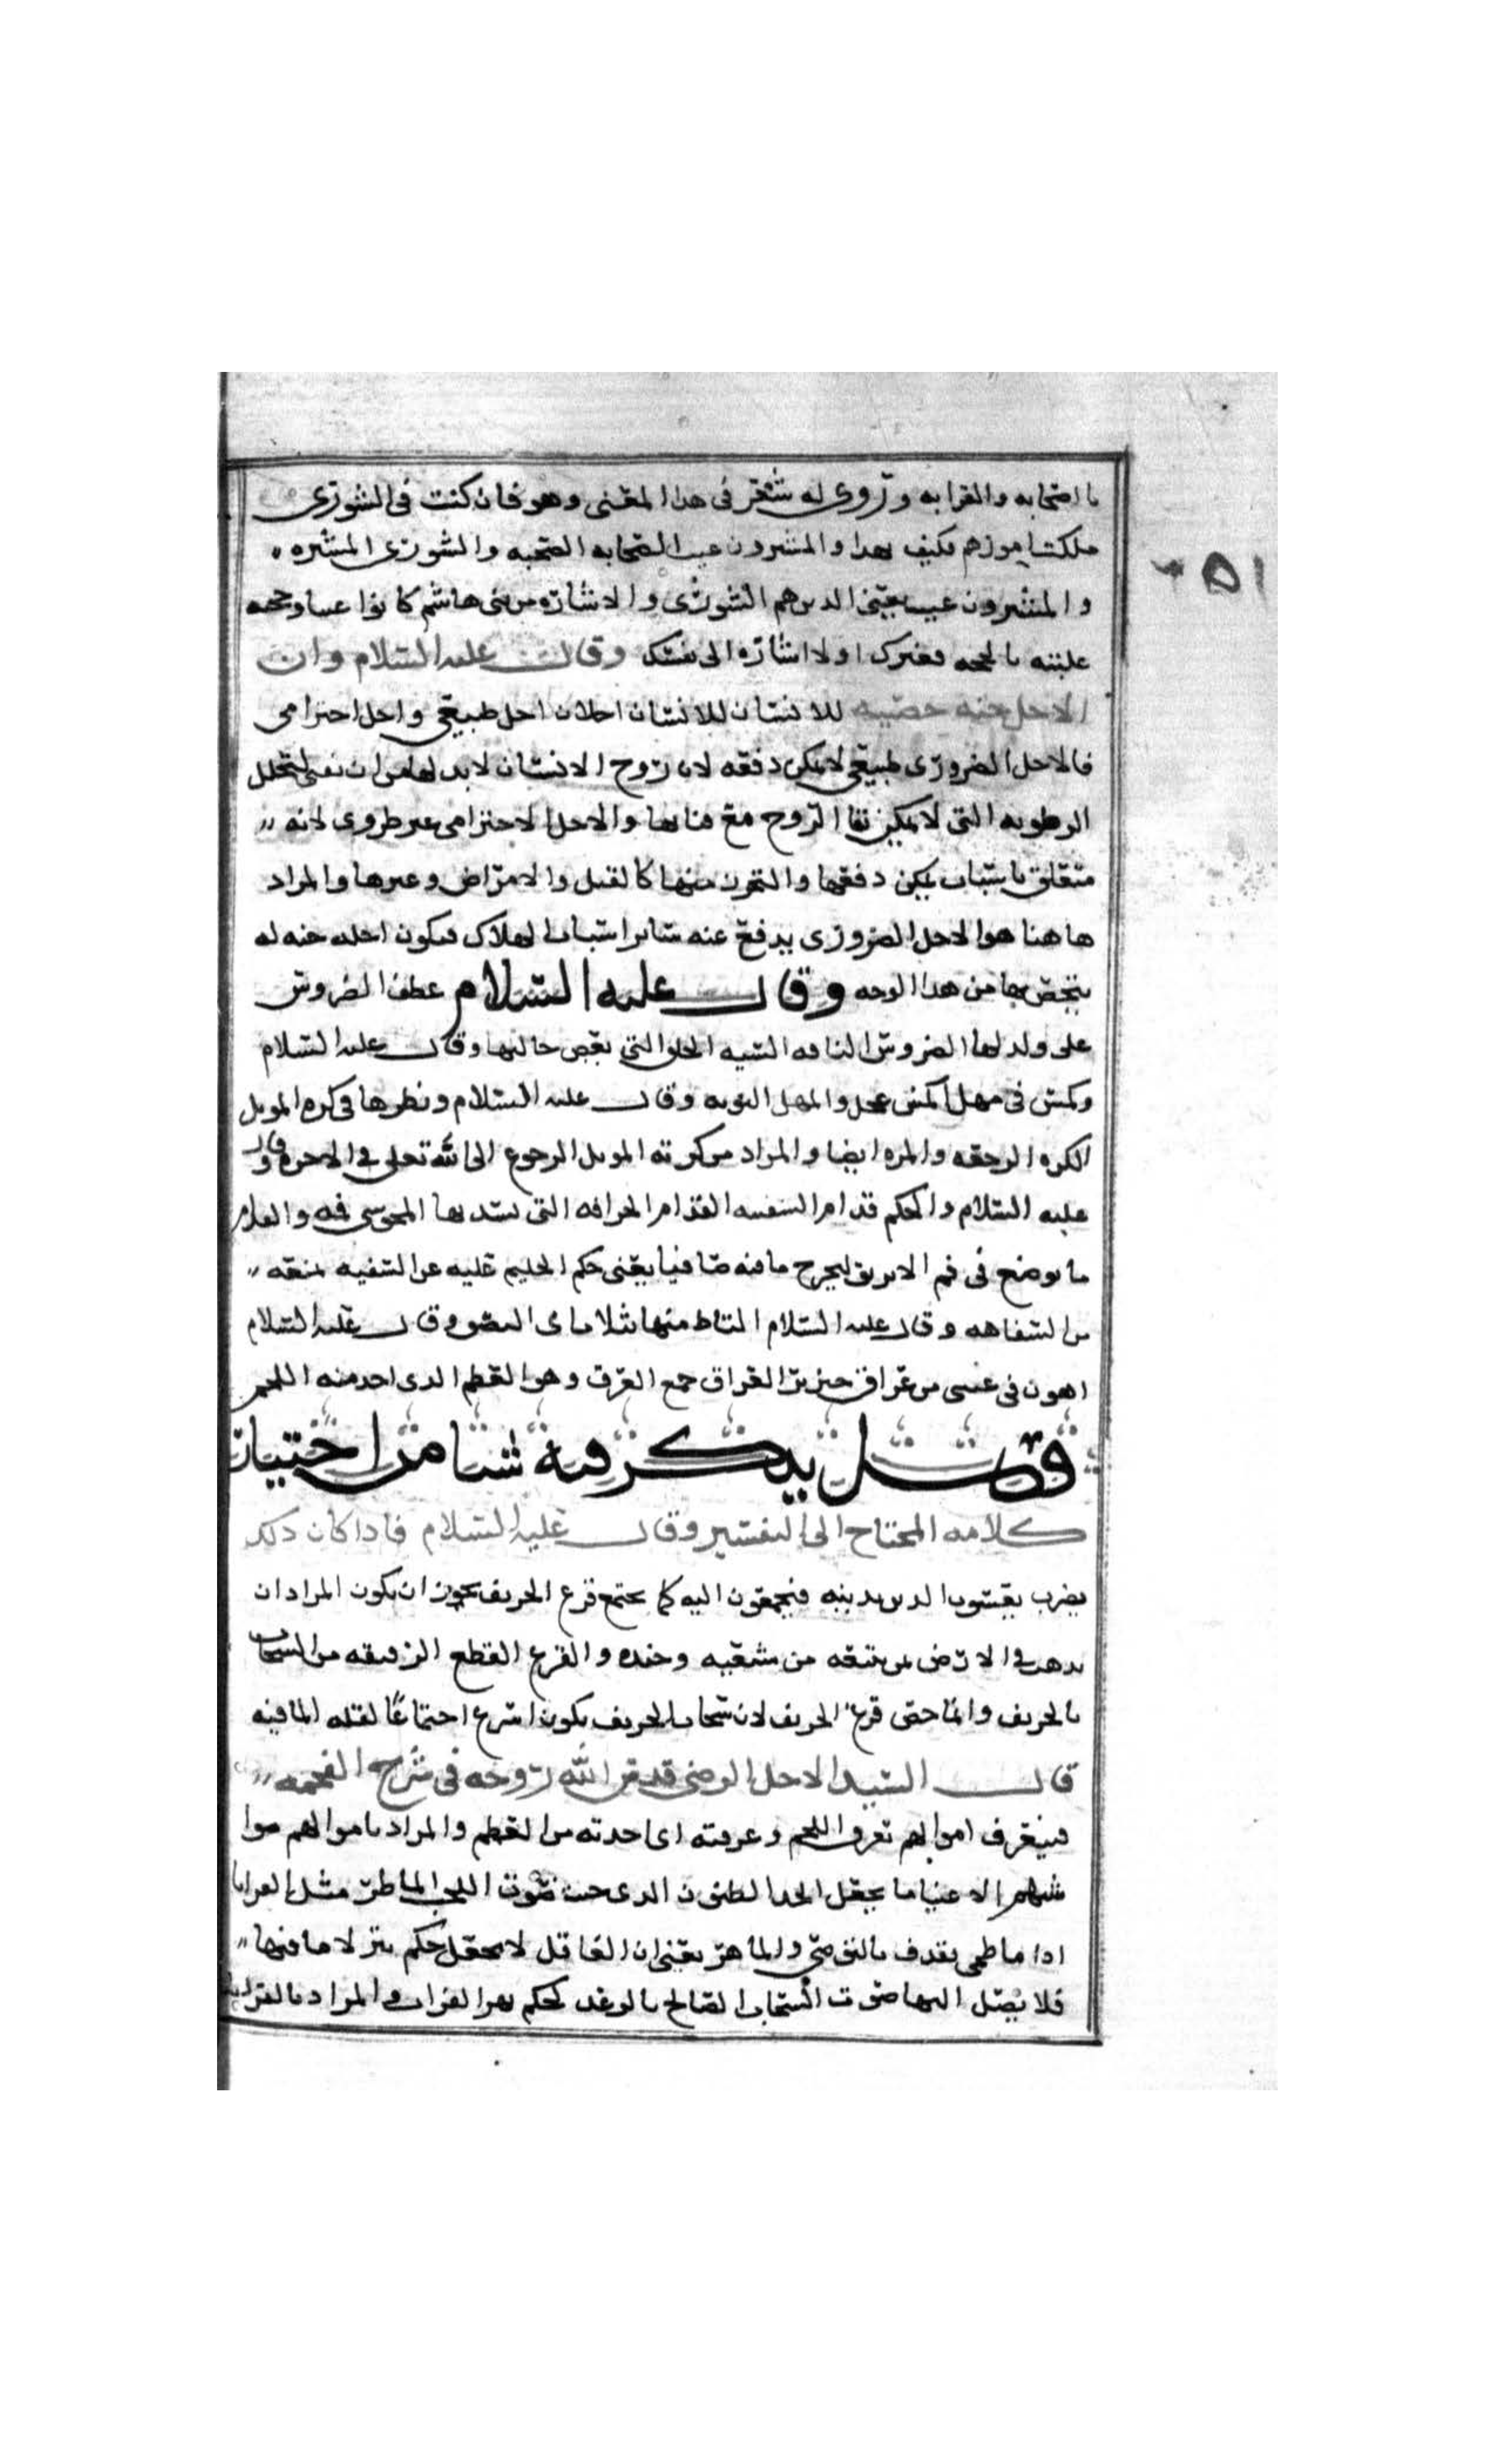 بالصحابه والقرابه وروى له شعر فى هذا المعنى وهو فان كنت فى الشورى
ملكت امورهم فكيف بهذا والمشيرون غيب الصحابه الصحبه والشورى المشوره
والمشيرون غيب يعنى الذين هم الشورى والاشاره من بنى هاشم كانوا غيبا وحجه
عليه بالحجه فغيرك اولا اشاره الى نفسك وقال عليه السلام وان
الاجل جنه حصينه للانسان للانسان اجلان اجل طبيعى واجل اخترامى
فالاجل الضرورى طبيعى لا يمكن دفعه لان روح الانسان لابد لها من ان تفنى لتحلل
الرطوبه التى لا يمكن بقا الروح مع فنايها والاجل الاخترامى غير ضرورى لانه
متعلق باسباب يمكن دفعها والتحرز منها كالقتل والامراض وغيرها والمراد
هاهنا هو الاجل الضرورى يدفع عنه ساير اسباب الهلاك فيكون اجله جنه له
يتحصن بها من هذا الوجه وقال عليه السلام عطف الضروس
على ولدها الضروس الناقه السيه الخلق التى بعض حالبها وقال عليه السلام
وكمش فى مهل اكمش عجل والمهل التوده وقال عليه السلام ونظرها فى كره الموئل
الكره الرجعه والمره ايضا والمراد من كرته الموئل الرجوع الى الله تعالى فى الاخره وقال
عليه السلام والحكم فدام السفيه الفدام الخرقه التى يشد بها المجوسى فمه والفدام
ما يوضع فى فم الابريق ليخرج ما فيه صافيا يعنى حكم الحليم عليه عن السفيه لمنعه
من السفاهه وقال عليه السلام التاط منها بثلاث اى التصق وقال عليه السلام
اهون فى عينى من عراق خنزير العراق جمع العرق وهو العظم الذى اخذ منه اللحم
فصل يذكر فيه شيا من اختيار
كلامه المحتاج الى التفسير وقال عليه السلام فاذا كان ذلك
يضرب يعسوب الدين بذنبه فيجمعون اليه كما يجتمع قزع الخريف يجوز ان يكون المراد ان
يذهب فى الارض بمن تبعه من شعبه وجنده والقزع القطع الرقيقه من السحاب
بالخريف وانما خص قزع الخريف لان سحاب الخريف يكون اسرع اجتماعا لقله الما فيه
قال السيد الاجل الرضى قدس الله روحه فى شرح الفحمه
فيتعرف اموالهم تعرق اللحم وعرقته اى اخذته من العظم والمراد باموالهم موا
شيهم الاغنيا ما يجعل الجد الظنون الذى جنب صوب اللجب الماطر مثل الفراتى
اذا ما طمى يقذف بالبوصى والماهر يعنى ان العاقل لا يجعل حكم بئر لا ما فيها
فلا يصل اليها صوب السحاب الصالح بالرعد كحكم بهر الفرات والمراد بالفراتى